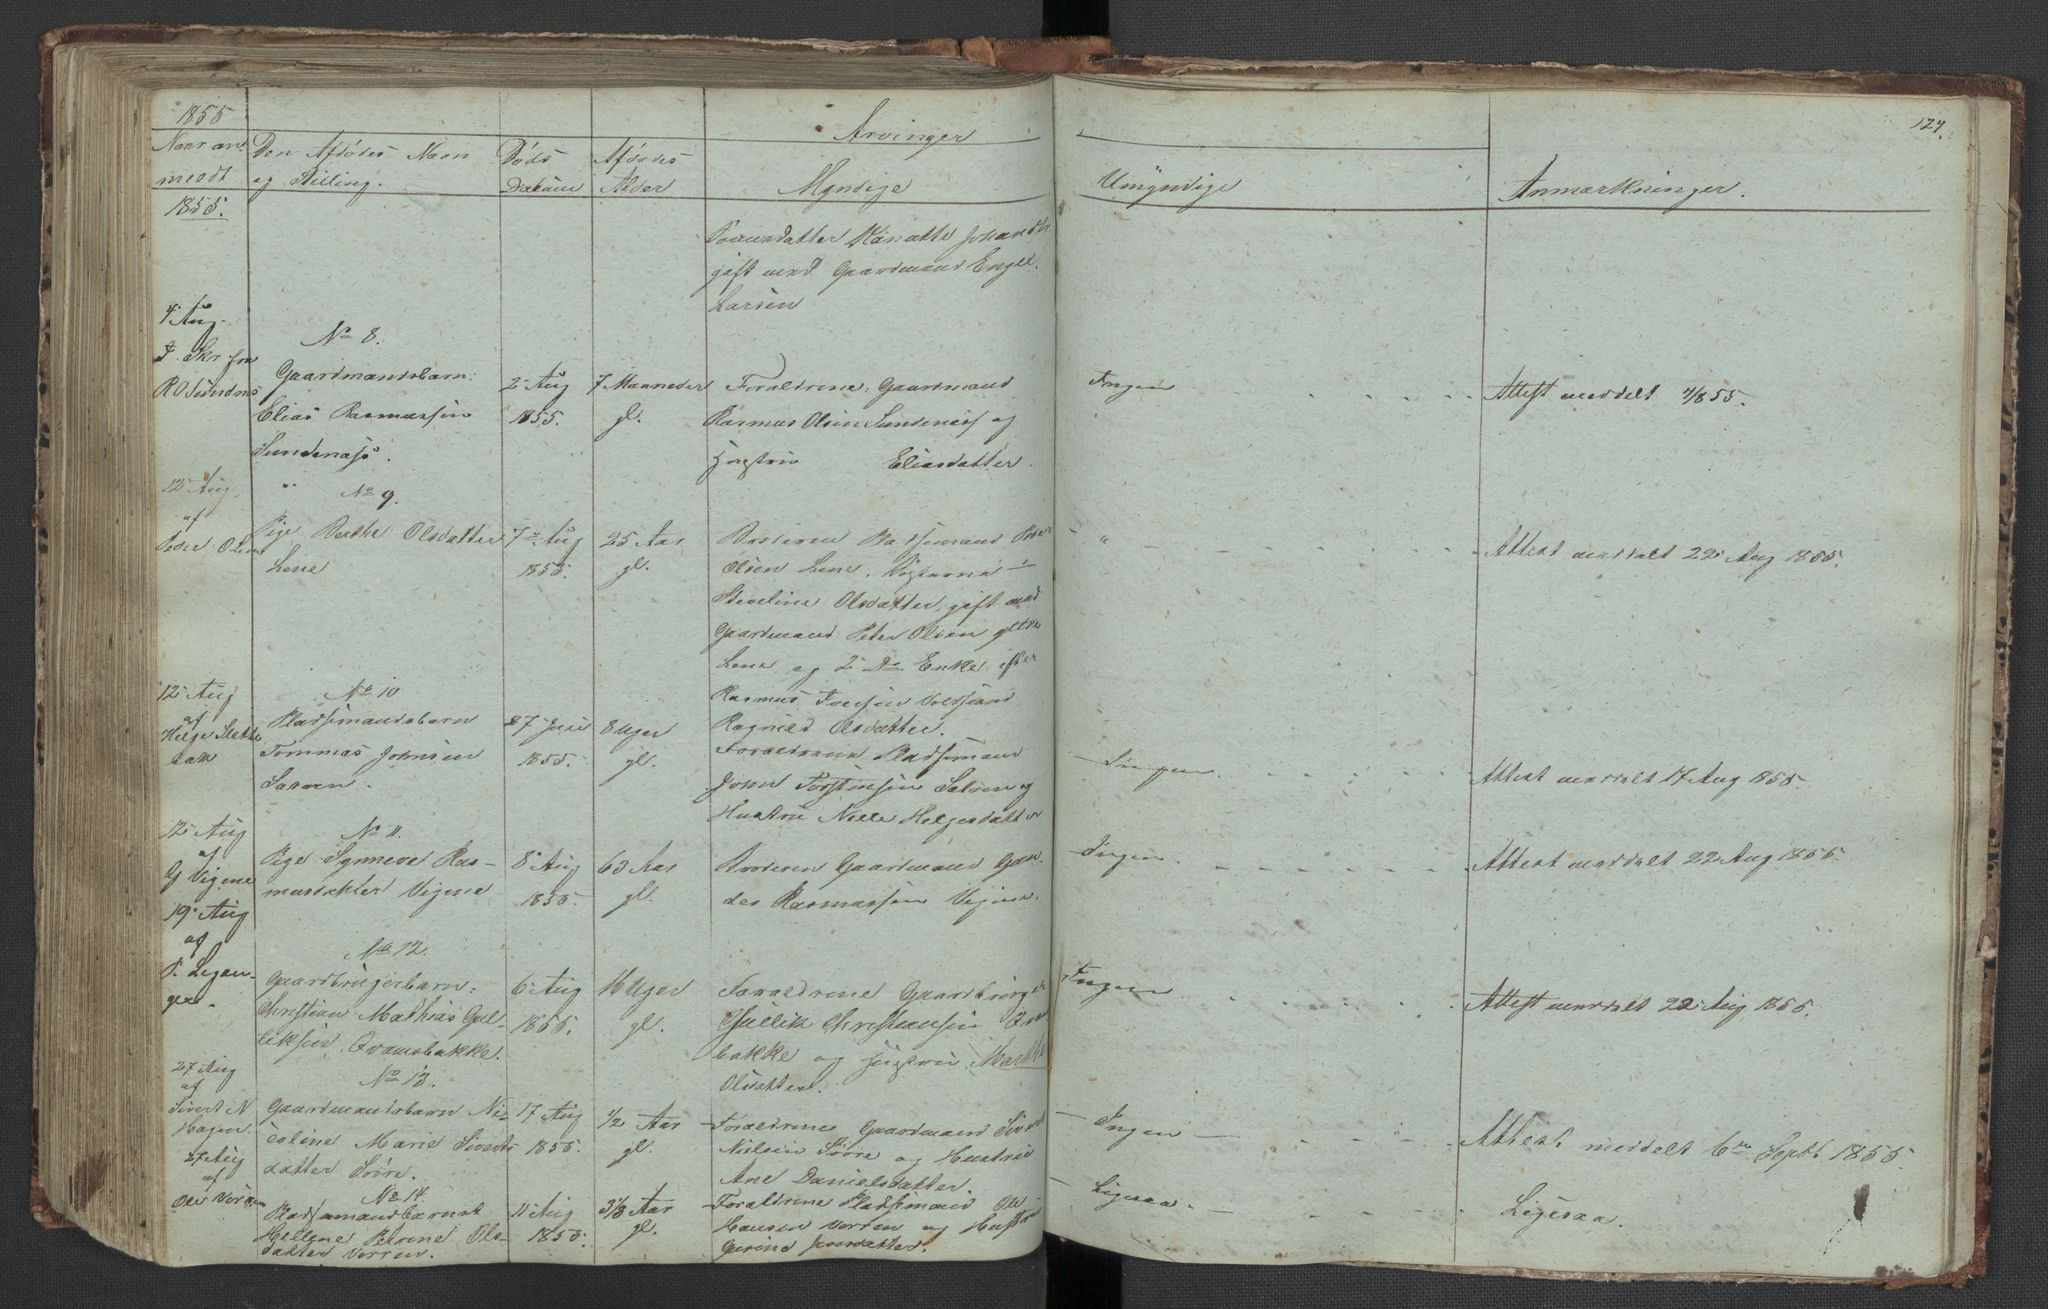 1855
Naar an-
meldt
Den Afdødes Navn
og Stilling.
Døds
Datum
Afdødes
Alder
Arvinger
Myndige
Umyndige
Anmærkninger.
127.
1855.
gift med Gaardmand Engel
Larsen
4 Aug.
No 8.
Gaardmandsbarn:
Elias Rasmussen
Sundenæss.
2 Aug
1855.
7 Maaneder
gl.
Forældrene: Gaardmand
Rasmus Olsen Sundenæss og
Hustru Eliasdatter.
Ingen
Attest meddelt 4/8 55.
12 Aug
af
Peder Olsen
No 9.
Pige Berthe Olsdatter
Lene
7de Aug
1855.
25 Aar
gl.
Broderen Pladsmand Peder
Olsen Lene, Søstrene
Steveline Olsdatter, gift med
Gaardmand Peter Olsen
Lene og 2 Do Enke efter
Rasmus Iversen
Ragnild Olsdatter.
"
Attest meddelt 22 Aug 1855.
12 Aug
af
Helge Slette
bak
No 10
Pladsmandsbarn
Tommas Johnsen
27 Juni
1855.
8 Uger
gl.
Forældrene Pladsmand
John Torstensen og
Hustru Nille Helgesdatter
Ingen
Attest meddelt 17 Aug 1855.
12 Aug
af
G Vigene
No 11.
Pige Synneve Ras-
musdatter Vigene
8 Aug
1855.
63 Aar
gl.
Broderen Gaardmand Gun-
der Rasmussen Vigene.
Ingen
Attest meddelt 22 Aug 1855.
19 Aug
af
P. Legan-
ger.
No 12.
Gaardbrugerbarn:
Christian Mathias Gul-
liksen Qvamsbakke.
6 Aug
1855.
Uger
gl.
Forældrene Gaardbruger
Gullik Christiansen Qvams
bakke og Hustru Marthe
Olsdatter.
Ingen
Attest meddelt 22 Aug 1855.
27 Aug
af
Sivert N
Hagen.
No 13.
Gaardmandsbarn Ni-
coline Marie Siverts
datter Sörre.
17 Aug
1855.
1/2 Aar
gl.
Forældrene Gaardmand Sivert
Nielsen Sörre og Hustru
Ane Danielsdatter.
Ingen
Attest meddelt 6te Septb. 1855.
27 Aug
af
Ole Verren
No 14.
Pladsmandsbarnet
Hellene Petrine Ols-
datter Verren.
11 Aug
1855.
3 1/3 Aar
gl.
Forældrene Pladsmand Ole
Hansen Verren og Hustru
Gurine Jensdatter.
Ligesaa.
Ligesaa.